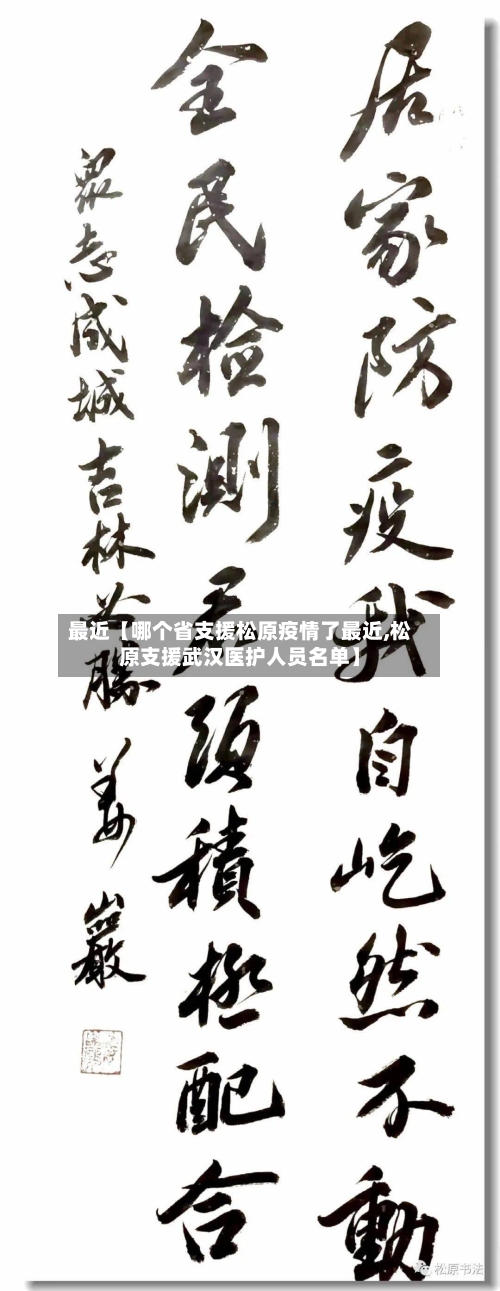 居家防疫我自屹然不動
全民检测君须積極配合
眾志成城吉林必勝 姜巖
最近【哪个省支援松原疫情了最近,松
原支援武汉医护人员名单】
松原书法